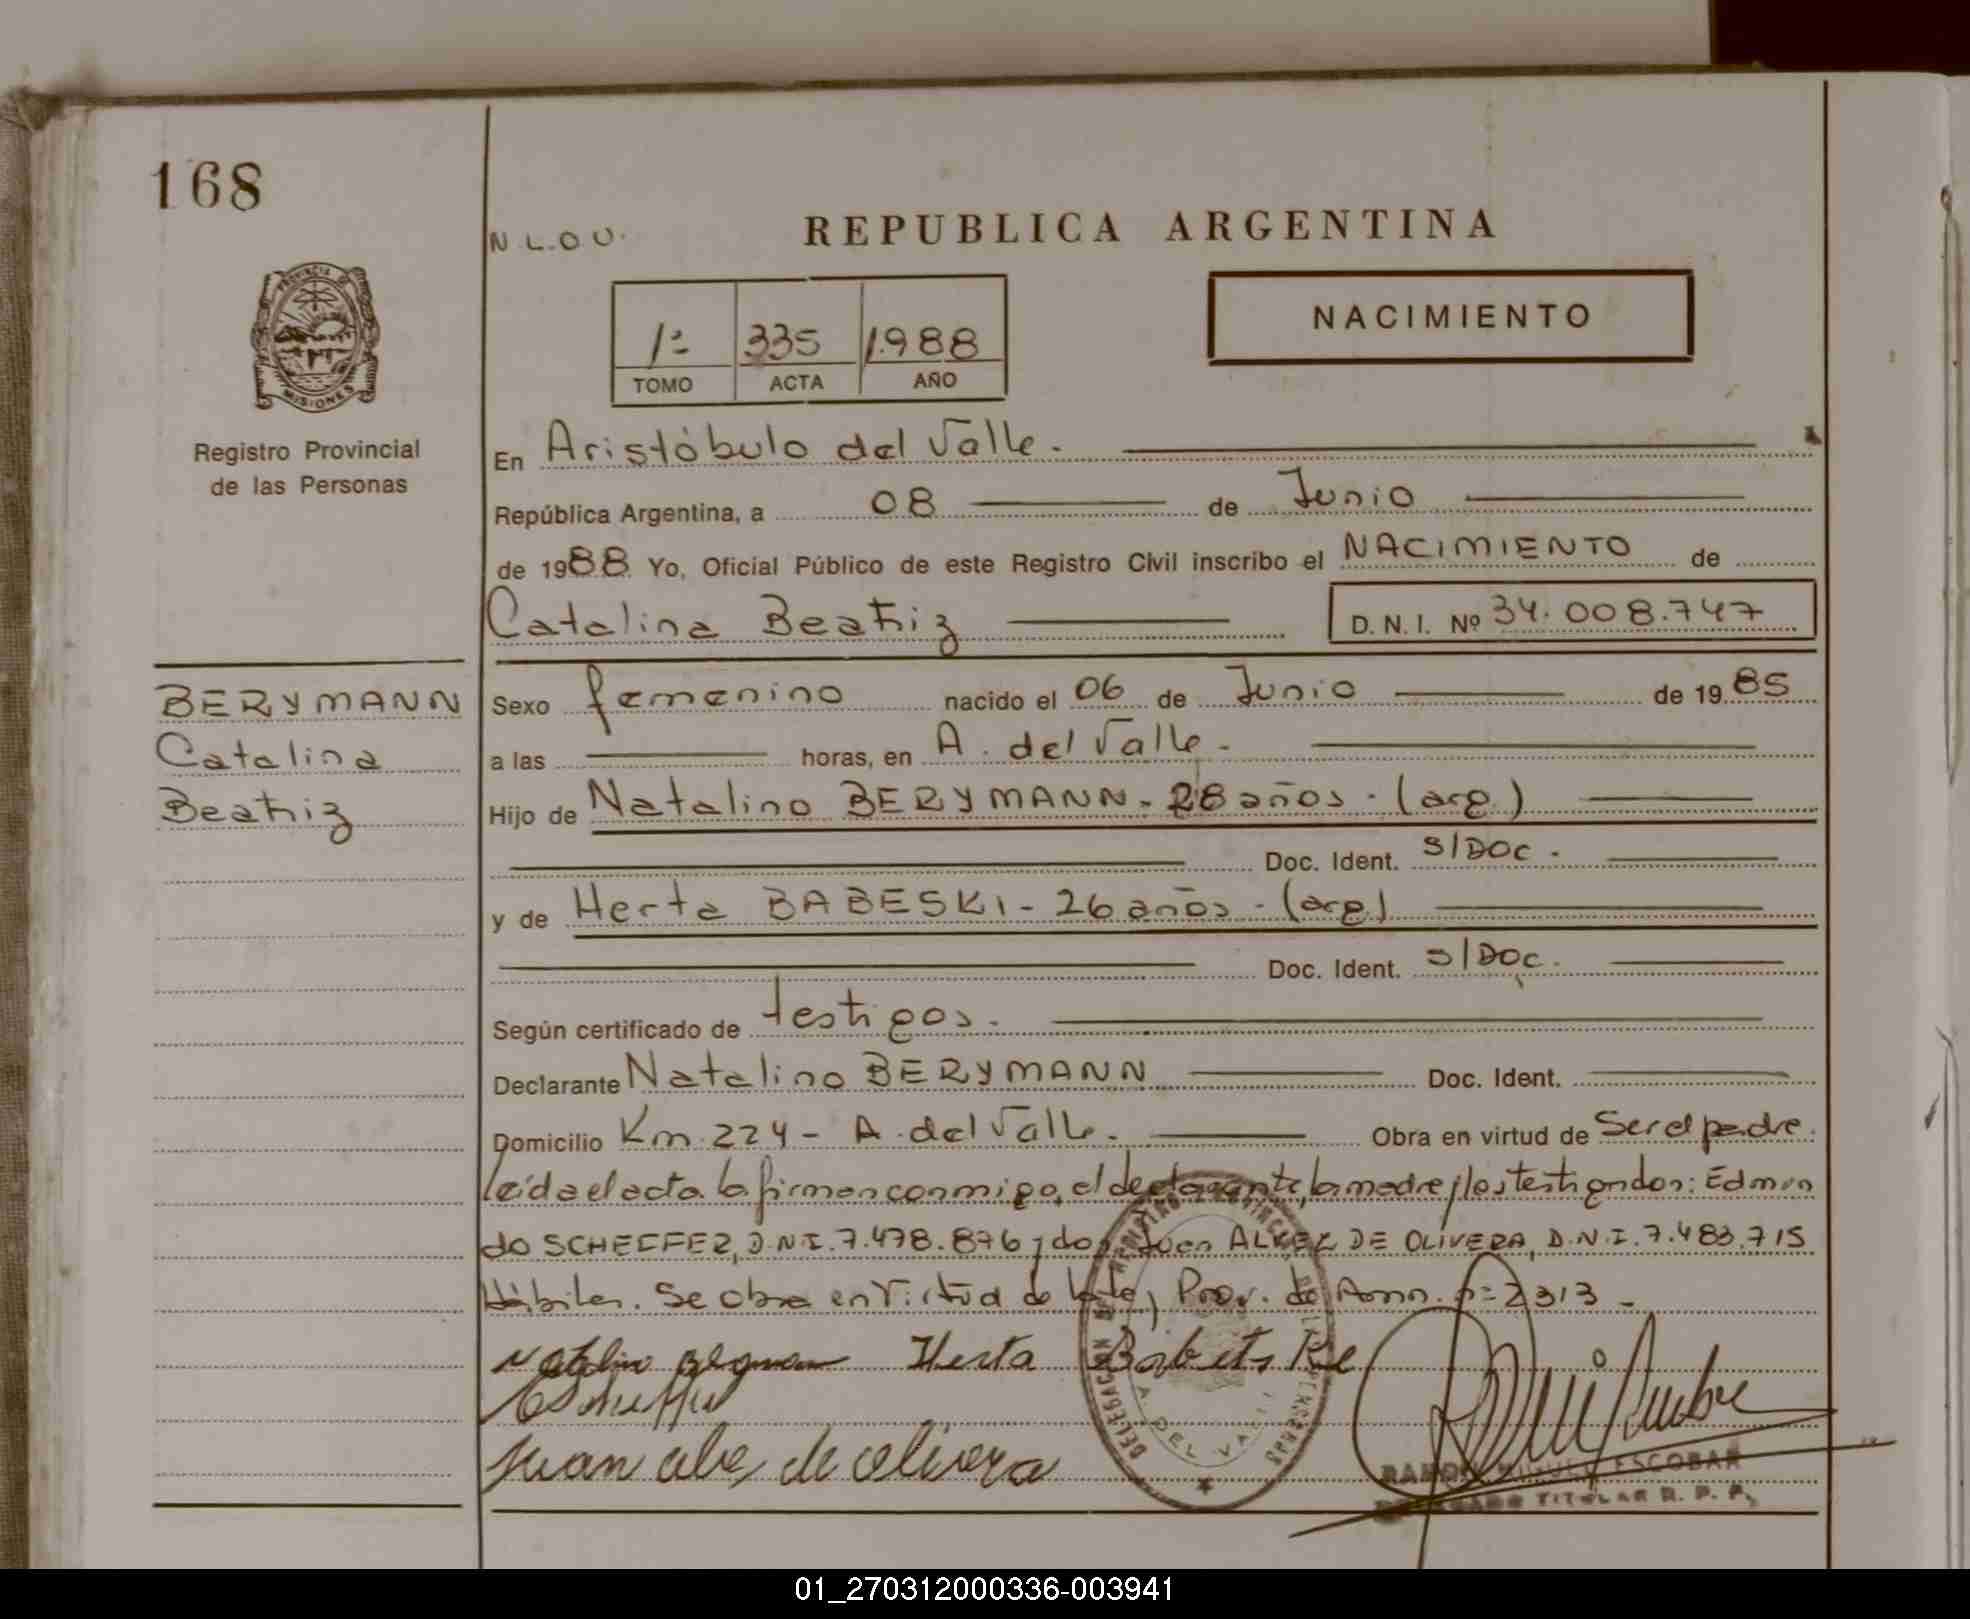 168
N.L.O.U.
REPUBLICA ARGENTINA
PROVINCIA DE
MISIONES
Registro Provincial
de las Personas
1º 335 1.988
TOMO ACTA AÑO
NACIMIENTO
En Aristóbulo del Valle.
República Argentina, a 08 de Junio
de 1988 Yo, Oficial Público de este Registro Civil inscribo el NACIMIENTO de
Catalina Beatriz D. N. I. Nº 34.008.747
BERYMANN
Catalina
Beatriz
Sexo femenino nacido el 06 de Junio de 1985
a las horas, en A. del Valle.
Hijo de Natalino BERYMANN. 28 años. (arg)
Doc. Ident. S/DOC.
y de Herta BABESKI - 26 años - (arg)
Doc. Ident. S/DOC.
Según certificado de testigos.
Declarante Natalino BERYMANN Doc. Ident.
Domicilio Km. 224 - A. del Valle. Obra en virtud de Ser el padre.
leída el acta la firman conmigo, el declarante, la madre y los testigos don: Edmun
do SCHEFFER, D.N.I. 7.478.876 y don Juan ALVEZ DE OLIVERA, D.N.I. 7.483.715
Hábiles. Se obra en Virtud de
Herta
Juan alves de olivera
DELEGACION
A. DEL VALLE
RAMON MIGUEL ESCOBAR
DELEGADO TITULAR R. P. P.
01_270312000336-003941